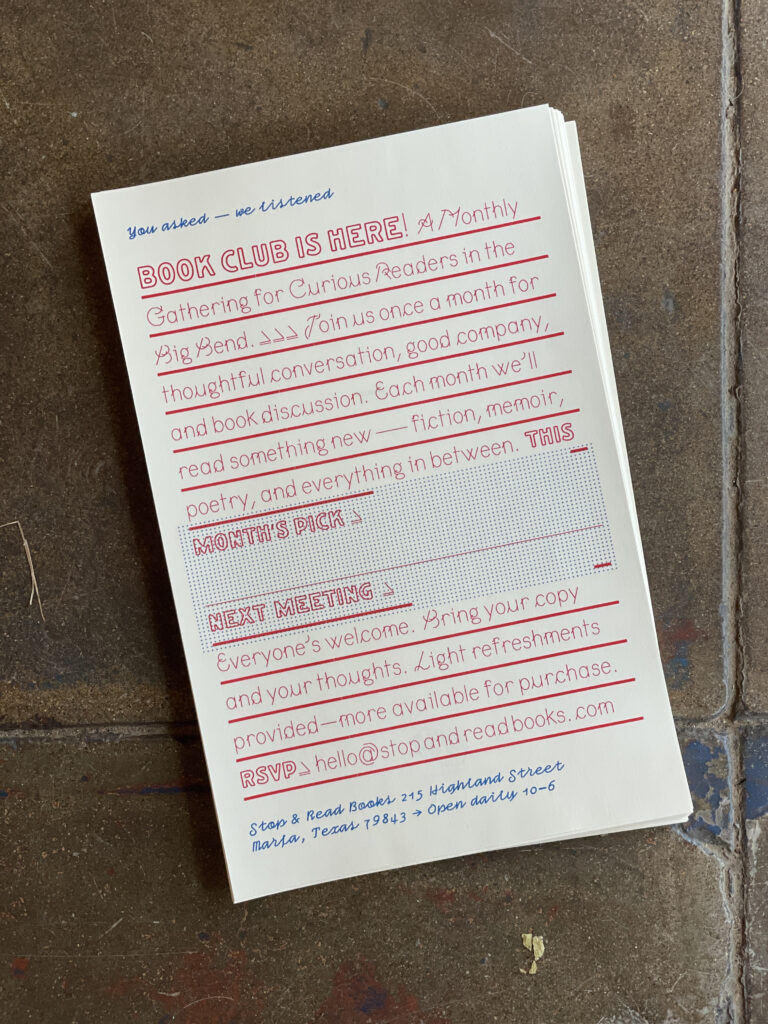 You asked — we listened
BOOK CLUB IS HERE! A Monthly
Gathering for Curious Readers in the
Big Bend. >>> Join us once a month for
thoughtful conversation, good company,
and book discussion. Each month we'll
read something new — fiction, memoir,
poetry, and everything in between. THIS
MONTH'S PICK >
NEXT MEETING >
Everyone's welcome. Bring your copy
and your thoughts. Light refreshments
provided—more available for purchase.
RSVP> hello@stopandreadbooks.com
Stop & Read Books 215 Highland Street
Marfa, Texas 79843 → Open daily 10–6